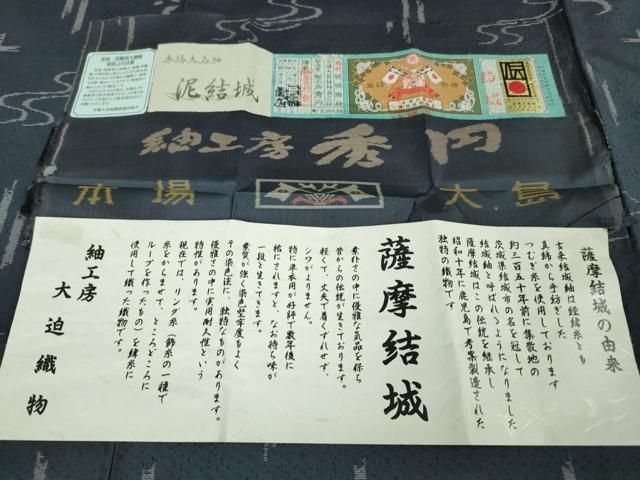 本場大島紬
泥結城
紬工房 秀円
本場
大島
薩摩結城の由来
古来結城紬は経緯糸とも
真綿から手紡ぎした
つむぎ糸を使用しております
約三百五十年前に集散地の
茨城県結城市の名を冠して
結城紬と呼ばれるようになりました
薩摩結城はこの伝統を継承し
昭和十年に鹿児島で考案製造された
独特の織物です。
薩摩結城
素朴さの中に優雅な気品を保ち
昔からの伝統が生きております。
軽くて、丈夫で着くずれせず、
シワがよりません。
特に単衣用が好評で数年後に
袷にされますと、なお持ち味が
一段と生きてきます。
素質が強く染色堅牢度もよく
その染色法に、独特なものがあります。
優雅さの中に実用耐久性という
特性があります。
現在では、リング糸(飾糸の一種で
糸をからませて、ところどころに
ループを作ったもの)を緯糸に
使用して織った織物です。
紬工房
大迫織物